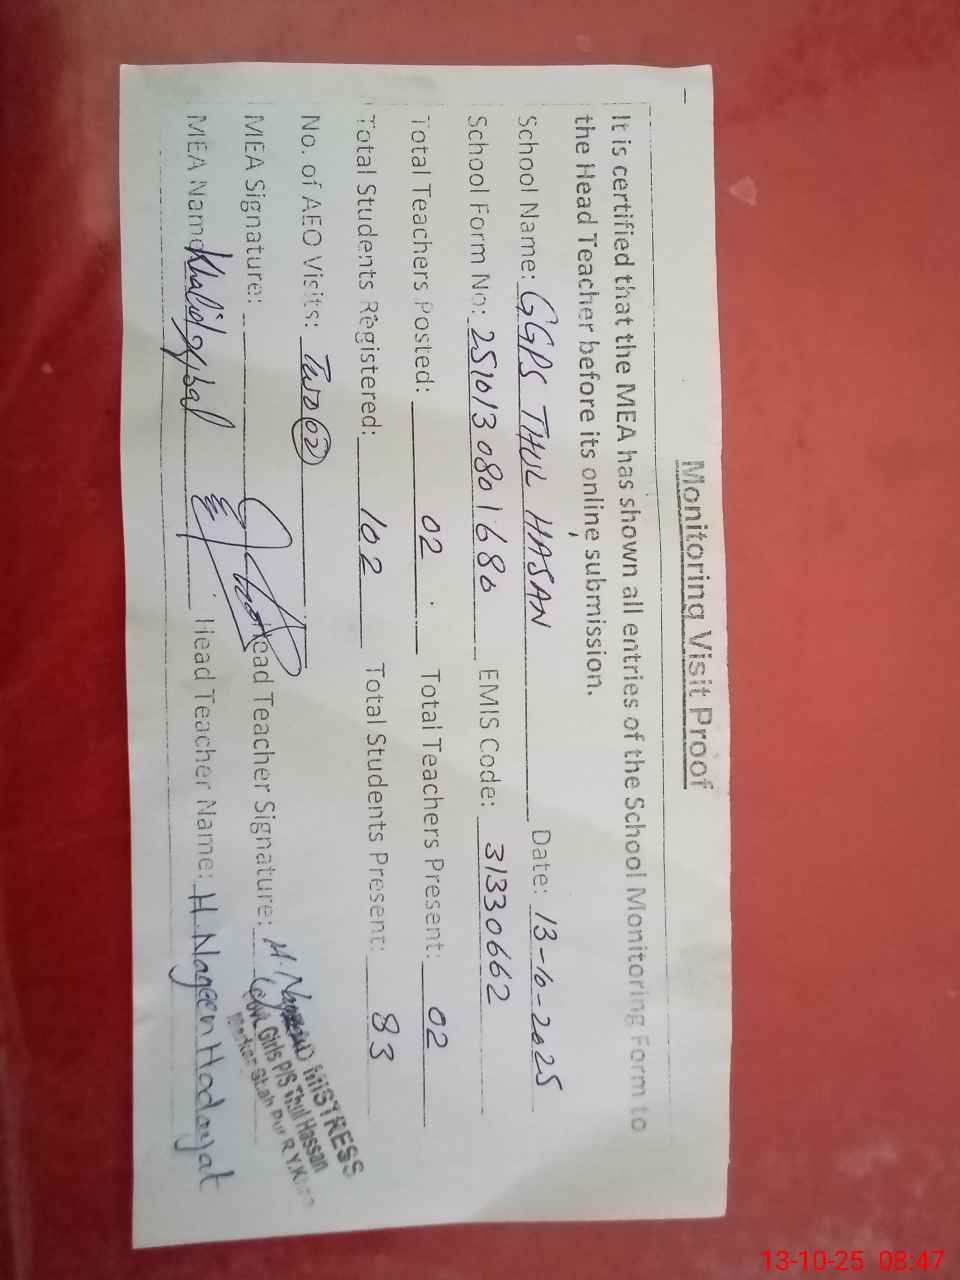 Monitoring Visit Proof
It is certified that the MEA has shown all entries of the School Monitoring Form to
the Head Teacher before its online submission.
School Name: GGPS THUL HASAN Date: 13-10-2025
School Form No: 251013080168 EMIS Code: 31330662
Total Teachers Posted: 02 Total Teachers Present: 02
Total Students Registered: 102 Total Students Present: 83
No. of AEO Visits: Two 02
MEA Signature: Head Teacher Signature:
MEA Name Khalid Iqbal Head Teacher Name: H. Nageen Hadayat
MISTRESS
Govt. Girls P/S Thul Hassan
Markaz Shah Pur R.Y.Khan
13-10-25 08:47